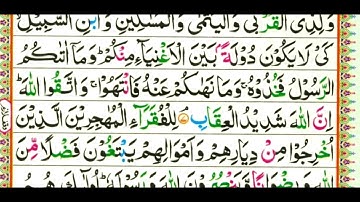 وَلِذِی الْقُرْبٰی وَالْیَتٰمٰی وَالْمَسٰكِیْنِ وَابْنِ السَّبِیْلِ
كَیْ لَا یَكُوْنَ دُوْلَةًۢ بَیْنَ الْاَغْنِیَآءِ مِنْكُمْ ؕ وَمَاۤ اٰتٰىكُمُ
الرَّسُوْلُ فَخُذُوْهُ ۗ وَمَا نَهٰىكُمْ عَنْهُ فَانْتَهُوْا ۚ وَاتَّقُوا اللّٰهَ ؕ
اِنَّ اللّٰهَ شَدِیْدُ الْعِقَابِ ۘ لِلْفُقَرَآءِ الْمُهٰجِرِیْنَ الَّذِیْنَ
اُخْرِجُوْا مِنْ دِیَارِهِمْ وَاَمْوَالِهِمْ یَبْتَغُوْنَ فَضْلًا مِّنَ
اللّٰهِ وَرِضْوَانًا وَّیَنْصُرُوْنَ اللّٰهَ وَرَسُوْلَهٗ ؕ اُولٰٓىِٕكَ هُمُ